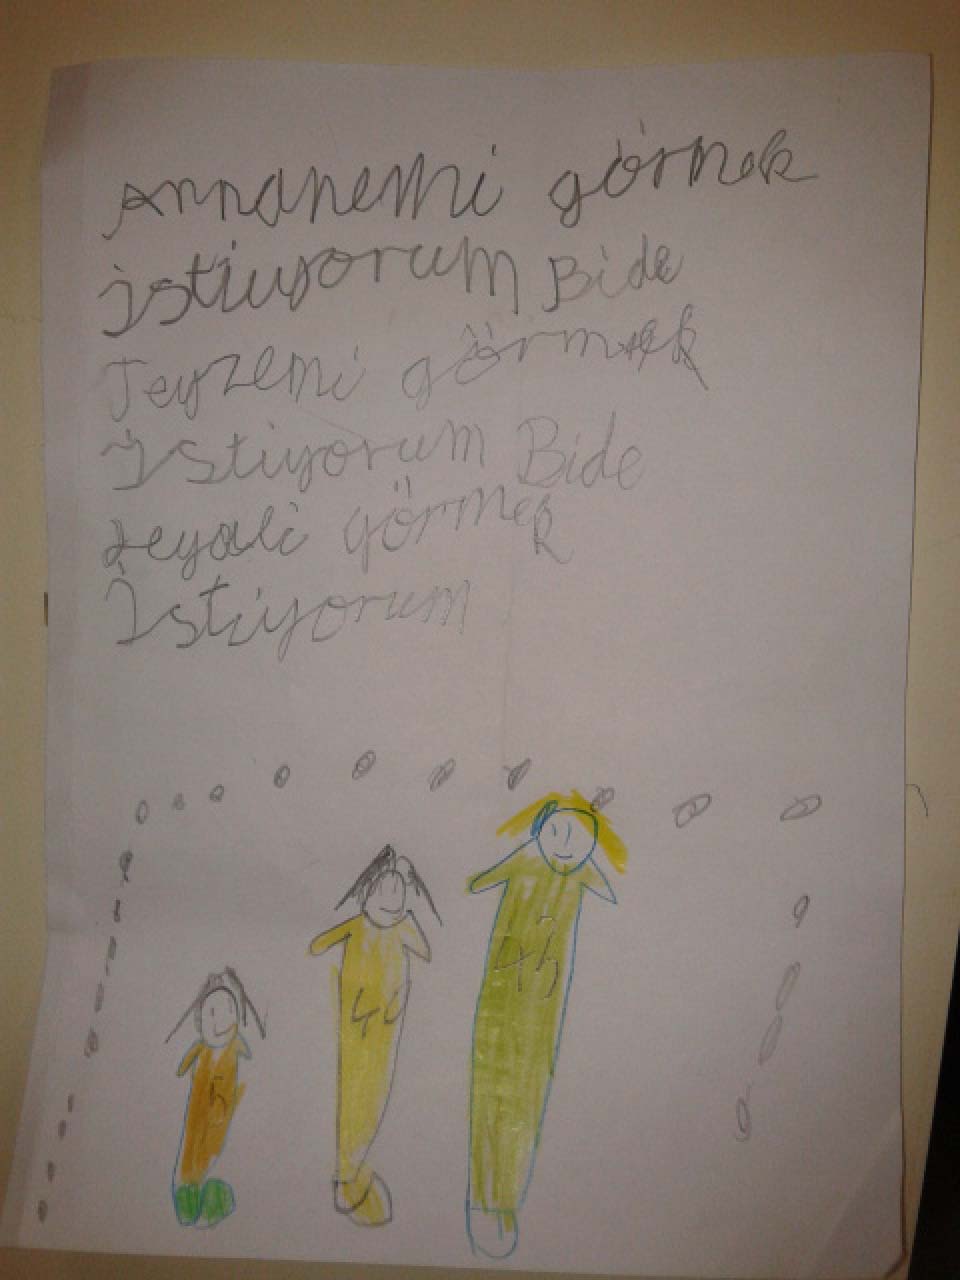 Annanemi görmek
İstiuyorum Bide
Teyzemi görmek
İstiyorum Bide
zeyali görmek
İstiyorum
5
45